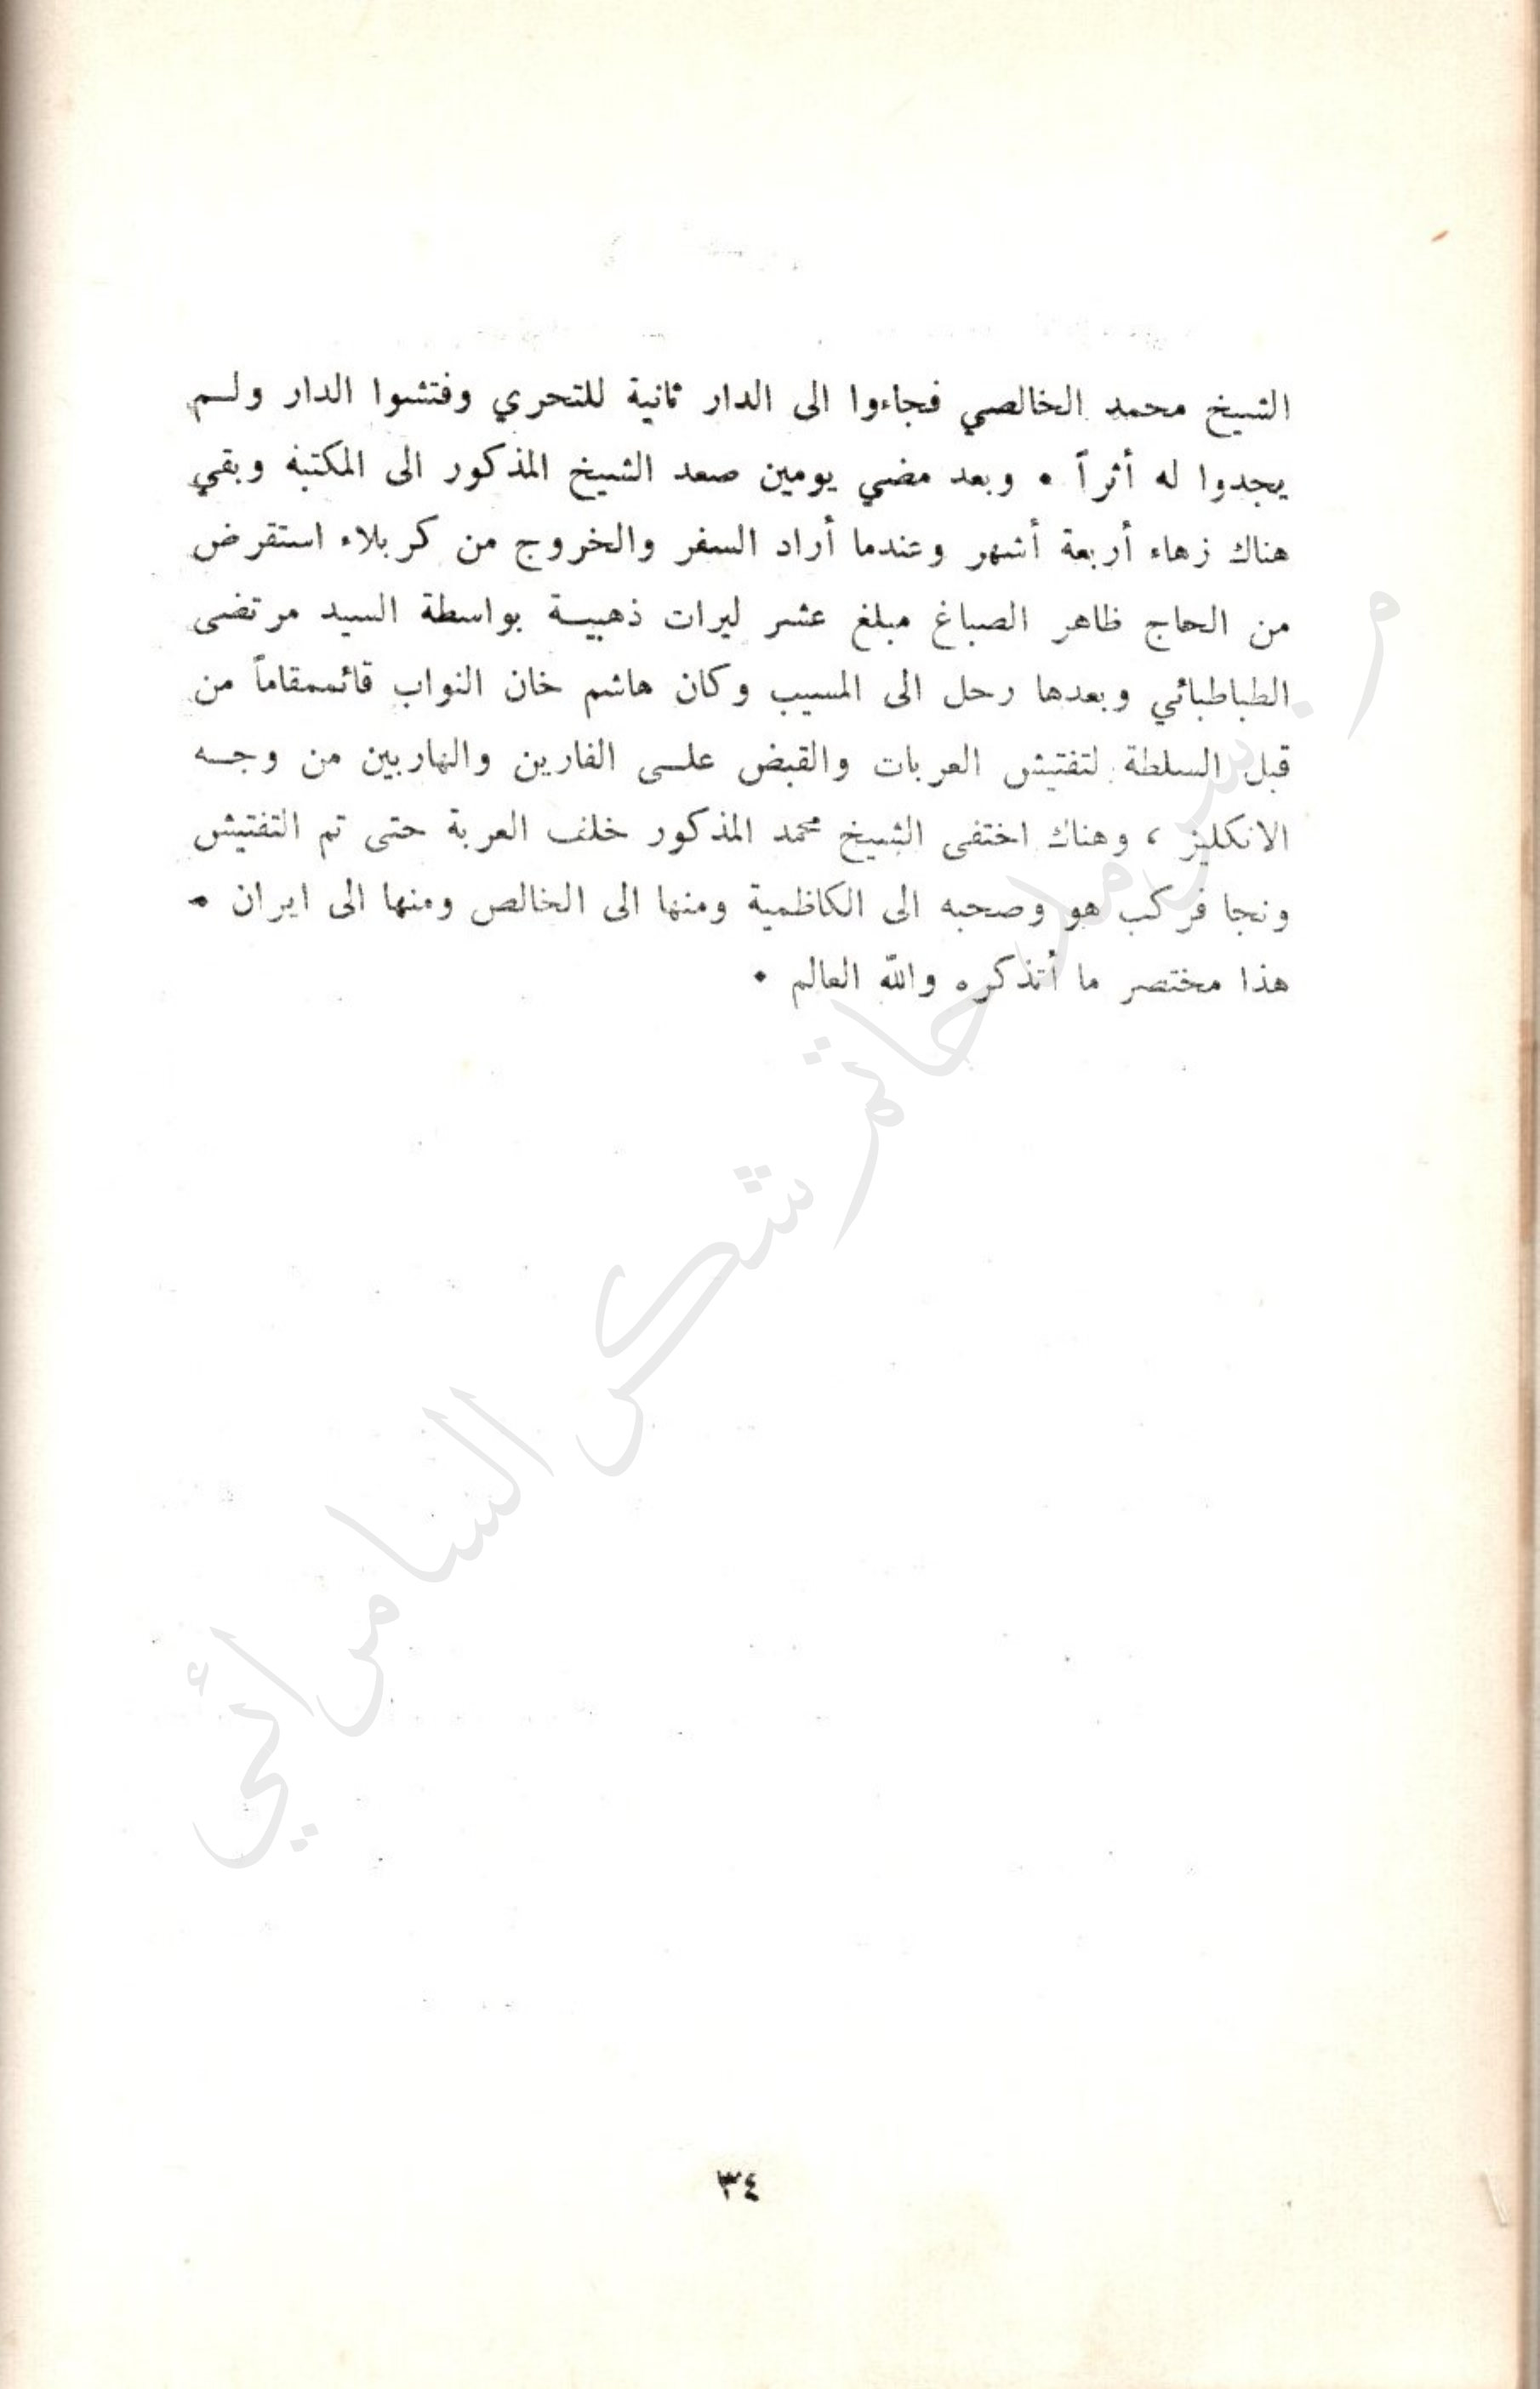 الشيخ محمد الخالصي فجاءوا الى الدار ثانية للتحري وفتشوا الدار ولم
يجدوا له أثراً . وبعد مضي يومين صعد الشيخ المذكور الى المكتبة وبقي
هناك زهاء أربعة أشهر وعندما أراد السفر والخروج من كربلاء استقرض
من الحاج ظاهر الصباغ مبلغ عشر ليرات ذهبية بواسطة السيد مرتضى
الطباطبائي وبعدها رحل الى المسيب وكان هاشم خان النواب قائممقاماً من
قبل السلطة لتفتيش العربات والقبض على الفارين والهاربين من وجه
الانكليز ، وهناك اختفى الشيخ محمد المذكور خلف العربة حتى تم التفتيش
ونجا فركب هو وصحبه الى الكاظمية ومنها الى الخالص ومنها الى ايران .
هذا مختصر ما أتذكره والله العالم .
حاتم شكر السامرائي
٣٤